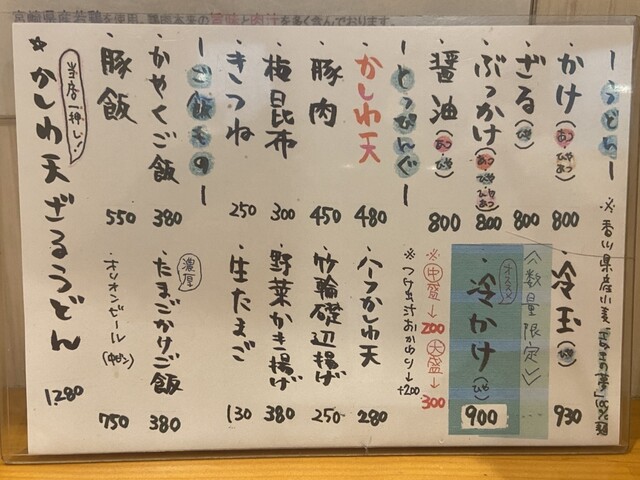 宮崎県産若鶏を使用、鶏肉本来の旨味と肉汁を多く含んでおります。
ーうどんー
※香川県産小麦「さぬきの夢」100%麺
・かけ(あつ・ひやあつ) 800
・ざる(ひや) 800
・ぶっかけ(あつ・ひや・ひやあつ) 800
・醤油(あつ・ひや) 800
・冷玉(ひや) 930
〈数量限定〉
オススメ
・冷かけ(ひや) 900
※中盛→200 大盛→300
※つけ出汁おかわり→+200
ーとっぴんぐー
・かしわ天 480
・豚肉 450
・梅昆布 300
・きつね 250
・ハーフかしわ天 280
・竹輪磯辺揚げ 250
・野菜かき揚げ 380
・生たまご 130
ーご飯ものー
・かやくご飯 380
・豚飯 550
濃厚
・たまごかけご飯 380
・オリオンビール(中ビン) 750
当店一押し!
*かしわ天ざるうどん 1280